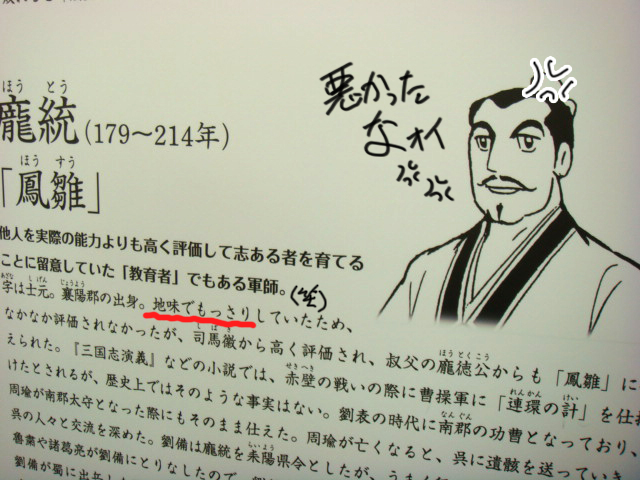 ほう とう
龐統(179〜214年)
ほう すう
「鳳雛」
悪かった
なオイ
他人を実際の能力よりも高く評価して志ある者を育てる
ことに留意していた「教育者」でもある軍師。
(笑)
あざな しげん じょうよう
字は士元。襄陽郡の出身。地味でもっさりしていたため、
しばき ほうとくこう
なかなか評価されなかったが、司馬徽から高く評価され、叔父の龐徳公からも「鳳雛」に
せきへき れんかん けい
えられた。『三国志演義』などの小説では、赤壁の戦いの際に曹操軍に「連環の計」を仕掛
なんぐん
けたとされるが、歴史上ではそのような事実はない。劉表の時代に南郡の功曹となっており、
周瑜が南郡太守となった際にもそのまま仕えた。周瑜が亡くなると、呉に遺骸を送っていき
らいよう
呉の人々と交流を深めた。劉備は龐統を耒陽県令としたが、うまく
魯粛や諸葛亮が劉備にとりなしたので、
劉備が蜀に出兵し